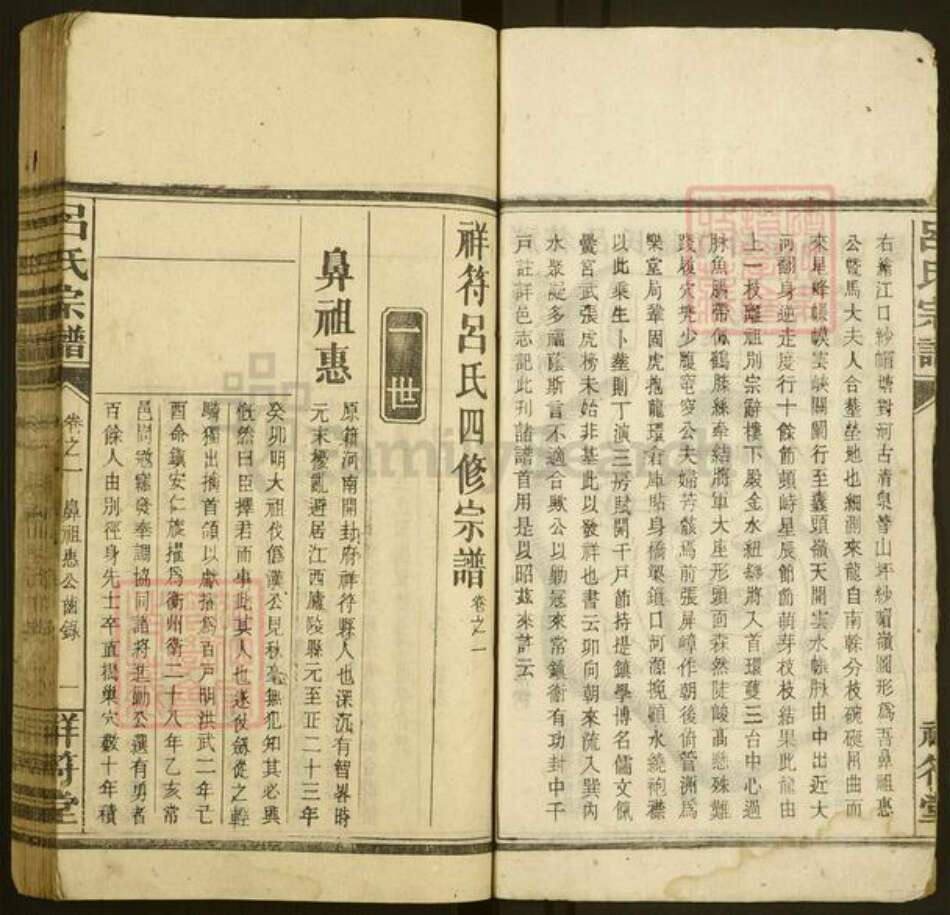 右繪江口紗帽塘對河古清泉等山坪紗帽嶺圖形爲吾鼻祖惠
公暨馬大夫人合墓塋地也細測來龍自南幹分枝碗礙屈曲而
來星峰帳模雲峽關闌行至蠢頭嶺天開雲水帳脉由中出近大
河翻身逆走度行十餘節頓峙星辰節節萌芽枝枝結果此龍由
上一枝離祖別宗辭樓下殿金水紐絲將入首環蔓三台中心過
脉魚腸帶佩鶴膝絲牽結將軍大座形頭面森然陡峻高懸殊難
踐履穴完少寵窀穸公夫婦芳骸焉前張屏嶂作朝後倚管洲爲
樂堂局鞏固虎抱龍環倉庫貼身橋梁鎖口河源挽顧水繞袍襟
以此乘生卜塟則丁演三房賦開千戸節持提鎮學博名儒文佩
黌宮武張虎榜未始非基此以致祥也書云卯向朝來流入巽內
水聚凝多福蔭斯言不適合歟公以勛冠來常鎮衛有功封中千
戸註詳邑志記此刋諸譜首用是以昭茲來許云
祥符呂氏四修宗譜 卷之一
一世
鼻祖惠
原籍河南開封府祥符縣人也深沉有智畧時
元末擾亂避居江西廬陵縣元至正二十三年
癸卯明大祖伐僞漢公見秋毫無犯知其必興
慨然曰臣擇君而事此其人也遂仗劍從之輕
騎獨出擒首領以獻授爲百戸明洪武二年己
酉命鎮安仁旋擢爲衡州衛二十八年乙亥常
邑峝寇竊發奉調協同諸將進勦公選有勇者
百餘人由別徑身先士卒直擣巢穴數十年積
呂氏宗譜
卷之一
鼻祖惠公齒錄
一
祥符堂